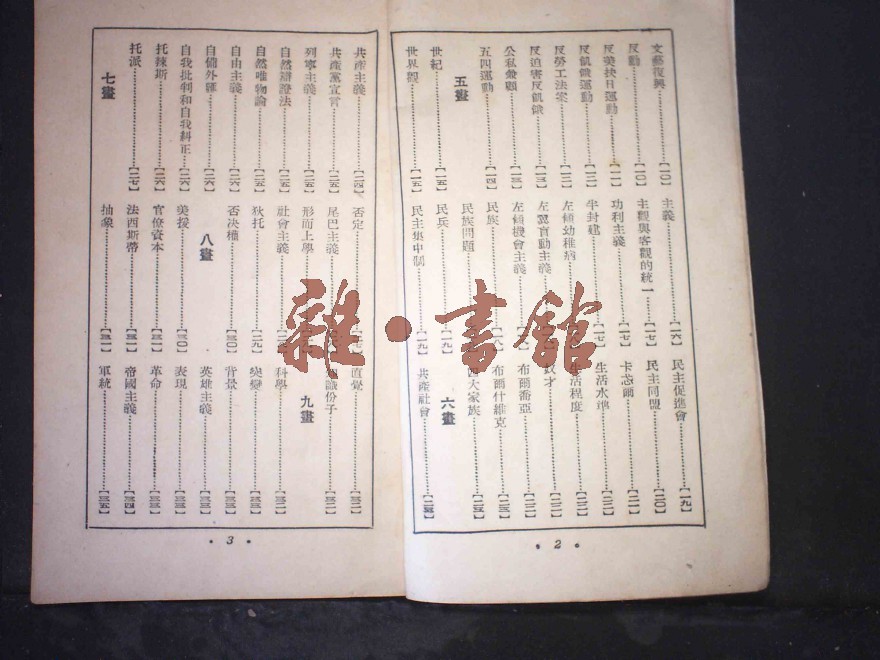 文藝復興【一〇】
反動【一〇】
反美扶日運動【一一】
反飢餓運動【一二】
反勞工法案【一二】
反迫害反飢餓【一三】
公私兼顧【一三】
五四運動【一四】
五畫
世紀【一五】
世界觀【一五】
主義【一六】
主觀與客觀的統一【一七】
功利主義【一七】
半封建【一七】
左傾幼稚病
左翼盲動主義
左傾機會主義
民族
民族問題
民兵【一九】
民主集中制【一九】
民主促進會【一九】
民主同盟【二〇】
卡忒爾【二一】
生活水準【二一】
生活程度【二一】
奴才【二二】
布爾喬亞【二二】
布爾什維克【二三】
四大家族
六畫
共產社會
2
共產主義【二四】
共產黨宣言【二四】
列寧主義【二五】
自然辯證法【二五】
自然唯物論【二五】
自由主義【二六】
自備外匯【二六】
自我批判和自我糾正【二六】
托辣斯【二六】
托派【二七】
七畫
否定
尾巴主義
形而上學
社會主義
狄托【二九】
否決權【三〇】
八畫
美援【三〇】
官僚資本【三一】
法西斯蒂【三一】
抽象【三一】
直覺【三二】
識份子【三二】
九畫
科學【三二】
突變
背景【三三】
英雄主義【三三】
表現【三三】
革命【三三】
帝國主義【三四】
軍統【三五】
3
雜·書館